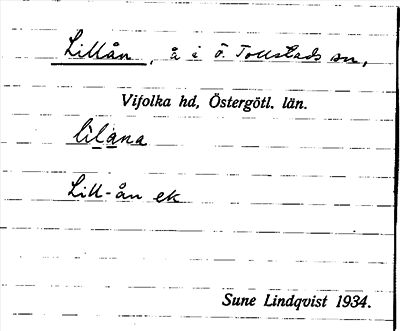 Lillån, å i Ö. Tollstads sn,
Vifolka hd, Östergötl. län.
lilana
Lill-ån ek
Sune Lindqvist 1934.